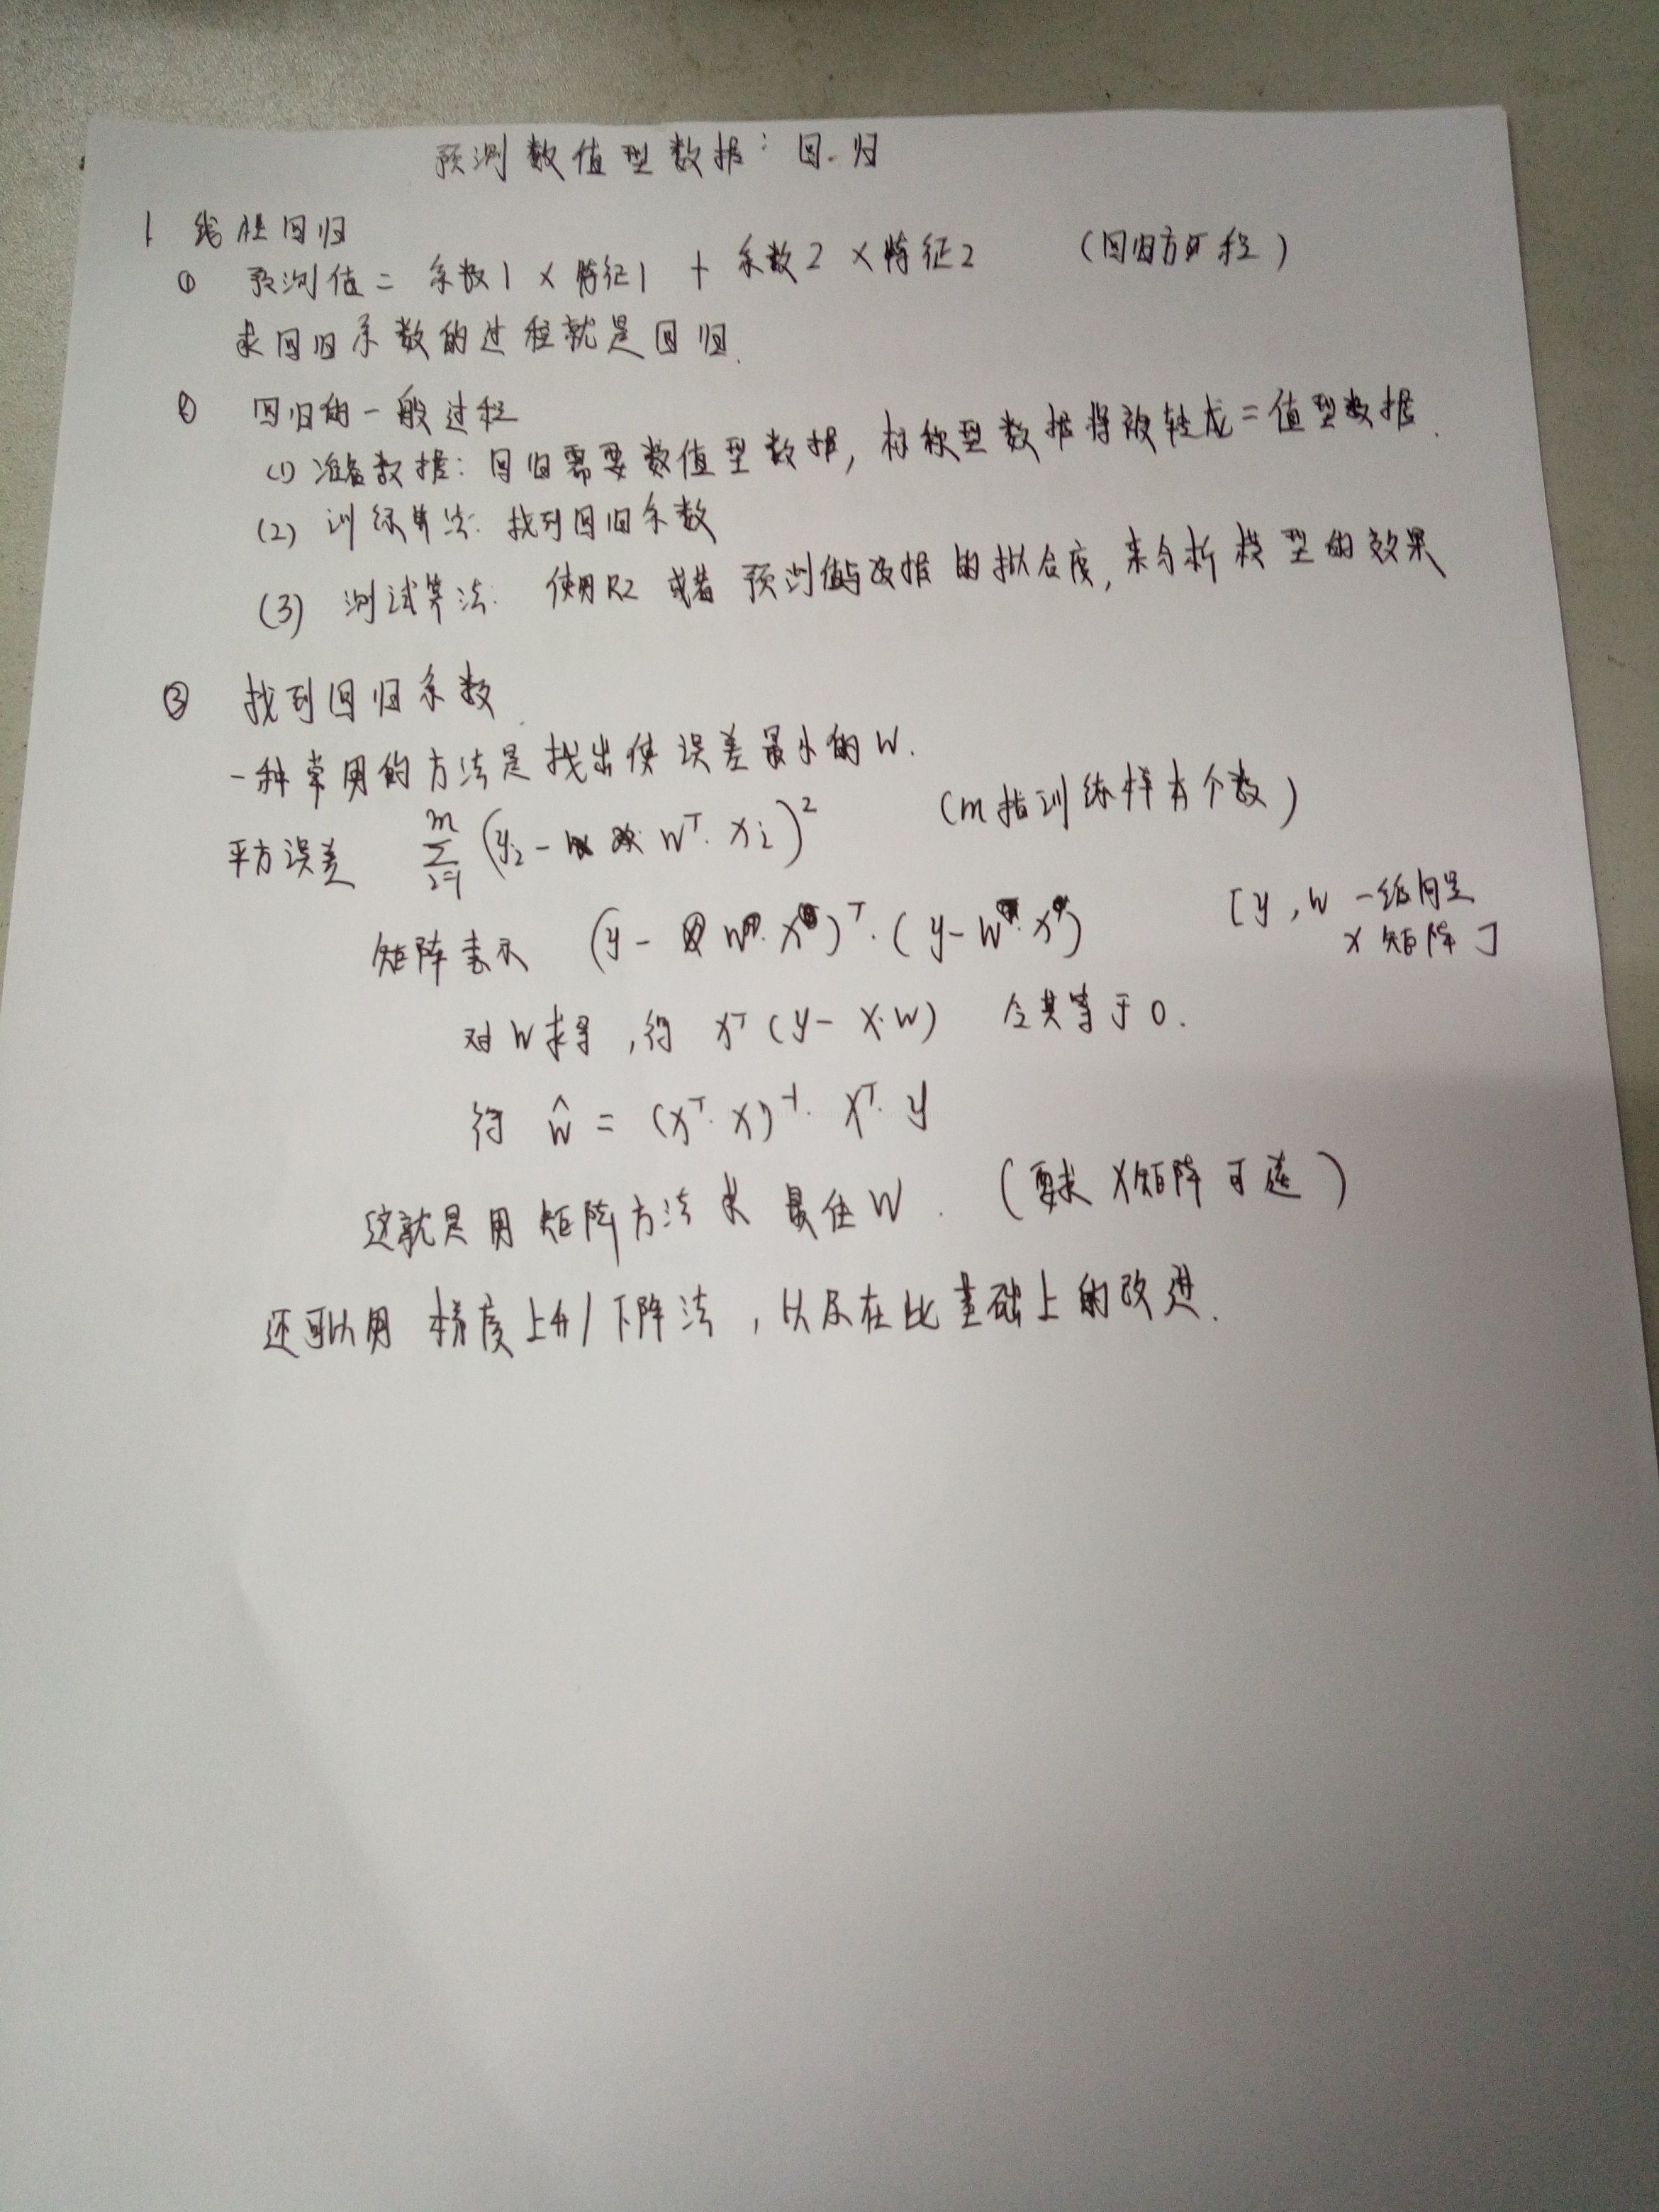 预测数值型数据：回归
1 线性回归
① 预测值 = 系数1 × 特征1 + 系数2 × 特征2 (回归方程)
求回归系数的过程就是回归.
② 回归的一般过程
(1) 准备数据: 回归需要数值型数据, 标称型数据将被转成二值型数据.
(2) 训练算法: 找到回归系数
(3) 测试算法: 使用R2 或者 预测值与数据的拟合度, 来分析模型的效果
③ 找到回归系数.
一种常用的方法是找出使误差最小的W.
平方误差 m∑i=1 (yi - wᵀ·xi)² (m指训练样本个数)
矩阵表示 (y - w·x)ᵀ·(y - w·x) [y, w 一维向量
x 矩阵]
对W求导, 得 xᵀ(y - x·w) 令其等于0.
得 ŵ = (xᵀ·x)⁻¹·xᵀ·y
这就是用矩阵方法求最佳W. (要求X矩阵可逆)
还可以用 梯度上升/下降法, 以及在此基础上的改进.